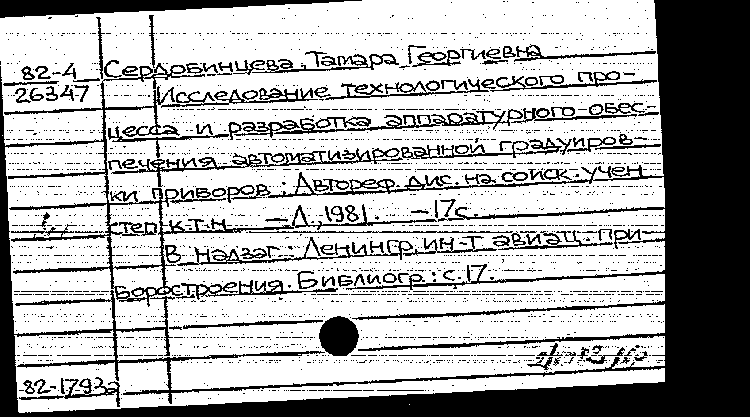 82-4 Сердобинцева, Тамара Георгиевна
26347 Исследование технологического про-
цесса и разработка аппаратурного обес-
печения автоматизированной градуиров-
ки приборов : Автореф. дис. на соиск. учен
степ к.т.н. — Л., 1981. — 17с.
В надзаг.: Ленингр. ин-т авиац. при-
боростроения. Библиогр.: с. 17.
82-1793а